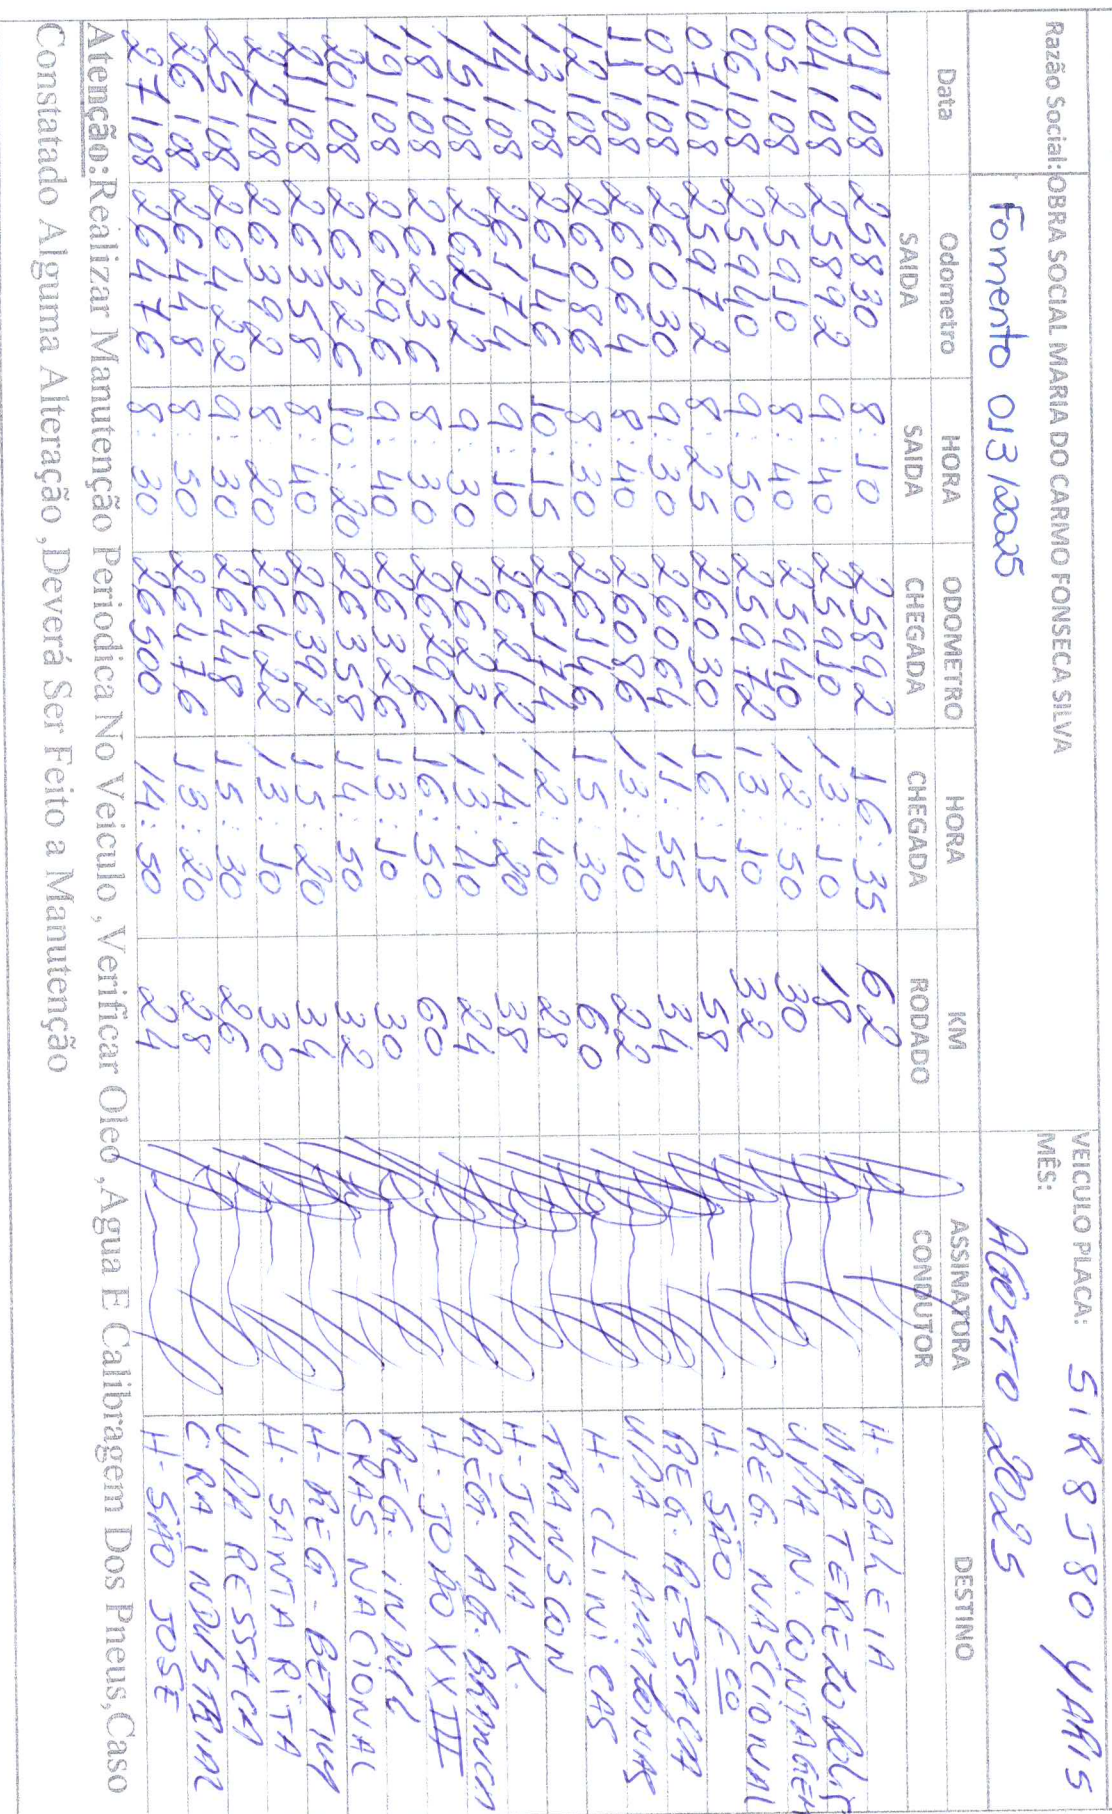 Razão Social: OBRA SOCIAL MARIA DO CARMO FONSECA SILVA VEICULO PLACA: SIR8J80 YARIS
Fomento 013/2025 MÊS: AGOSTO 2025
Data Odometro SAIDA HORA SAIDA ODOMETRO CHEGADA HORA CHEGADA KM RODADO ASSINATURA CONDUTOR DESTINO
01/08 25830 8:10 25892 16:35 62 H. BALEIA
04/08 25892 9:40 25910 13:10 18 UPA TEREZOPOLIS
05/08 25910 8:40 25940 12:50 30 UPA N. CONTAGEM
06/08 25940 9:50 25972 13:10 32 REG. NASCIONAL
07/08 25972 8:25 26030 16:15 58 H. SÃO FCO
08/08 26030 9:30 26064 11:55 34 REG. RESSACA
11/08 26064 8:40 26086 13:40 22 UPA AMAZONAS
12/08 26086 8:30 26146 15:30 60 H. CLINICAS
13/08 26146 10:15 26174 12:40 28 TRANSCON
14/08 26174 9:10 26212 14:20 38 H. JULIA K.
15/08 26212 9:30 26236 13:10 24 REG. AG. BRANCA
18/08 26236 8:30 26296 16:50 60 H. JOÃO XXIII
19/08 26296 9:40 26326 13:10 30 REG. INDUL
20/08 26326 10:20 26358 14:50 32 CRAS NACIONAL
21/08 26358 8:40 26392 15:20 34 H. REG. BETIM
22/08 26392 8:20 26422 13:10 30 H. SANTA RITA
25/08 26422 9:30 26448 15:30 26 UPA RESSACA
26/08 26448 8:50 26476 13:20 28 CRA INDUSTRIAL
27/08 26476 8:30 26500 14:50 24 H. SÃO JOSE
Atenção:Realizar Manutenção Periodica No Veiculo ,Verificar Oleo ,Agua E Calibragem Dos Pneus,Caso
Constatado Alguma Alteração ,Deverá Ser Feito a Manutenção